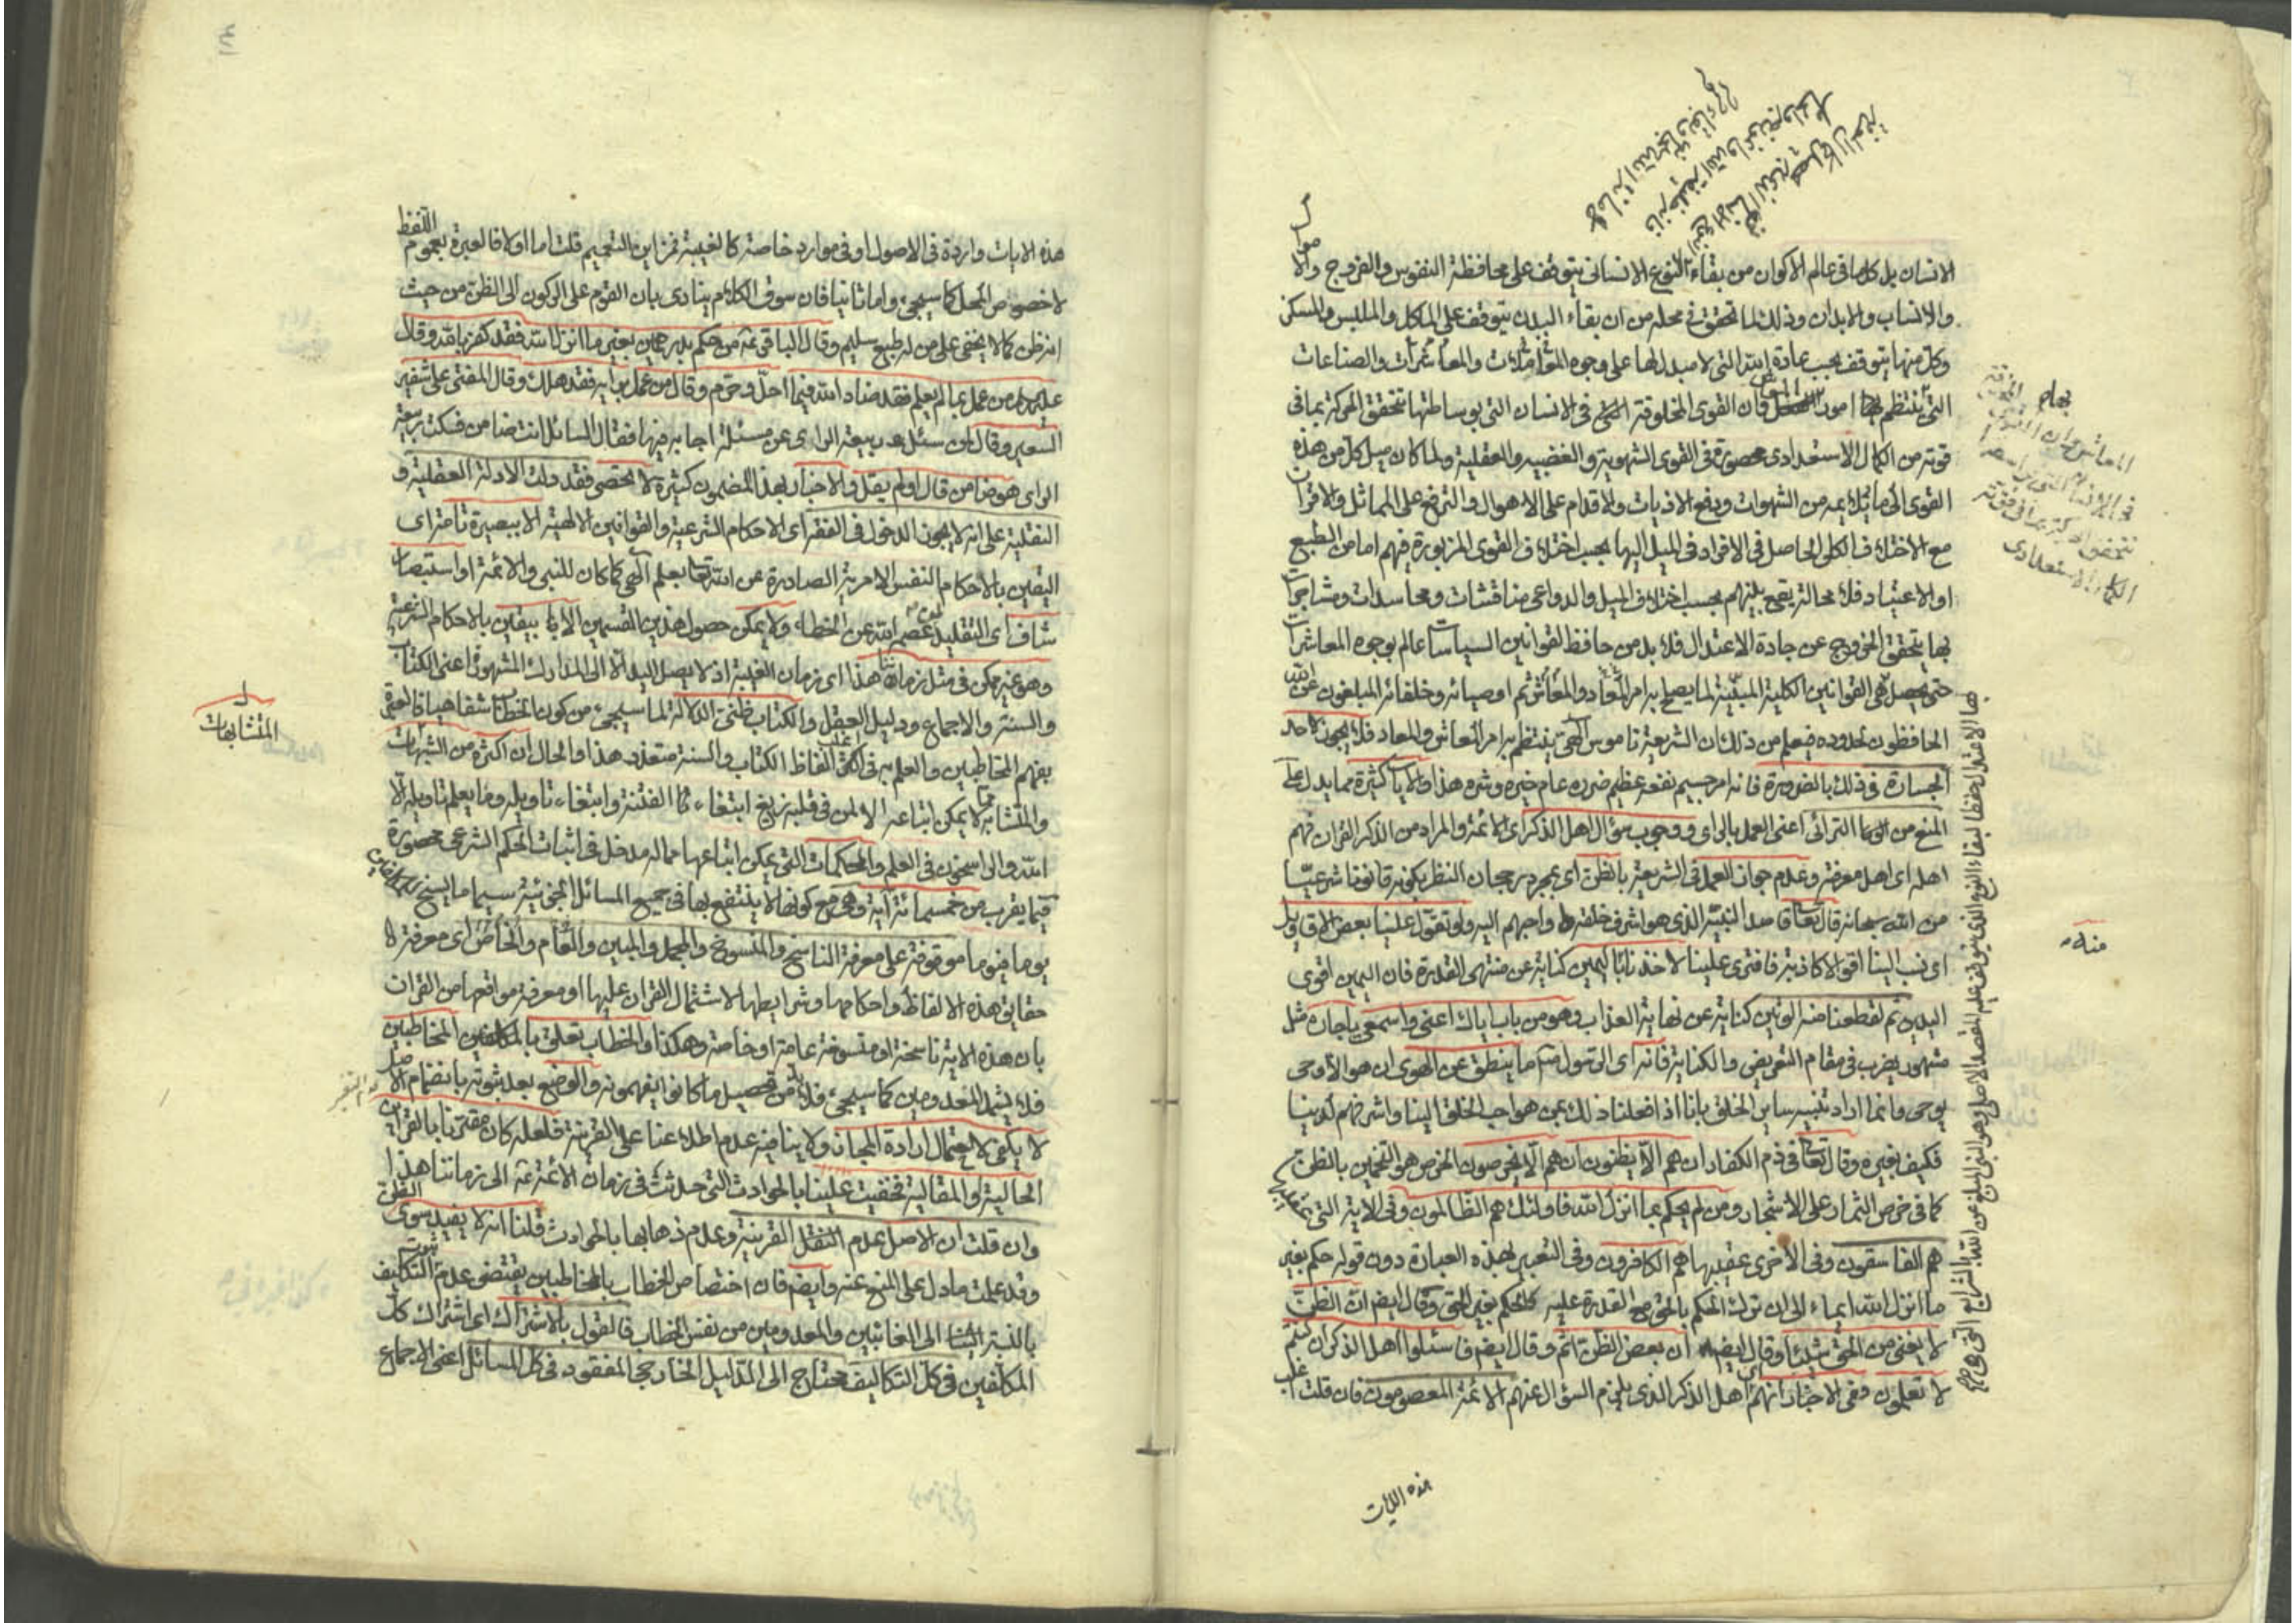 الانسان بل كل ما فى عالم الاكوان من بقاء النوع الانسانى يتوقف على محافظة النفوس والفروج والا
والانساب والابدان وذلك لما تحقق فى محله من ان بقاء البدن يتوقف على الماكل والملبس والمسكن
وكل منها يتوقف بحسب عادة الله التى لا مبدل لها على وجوه المعاملات والمعاشرات والصناعات
التى ينتظم بها امور فان القوى المخلوقة فى الانسان التى بوساطتها تتحقق الحركة بما فى
قوته من الكمال الاستعدادى محصورة فى القوى الشهوية والغضبيه والعقلية ولما كان ميل كل من هذه
القوى الى ما يلايمه من الشهوات ودفع الاذيات والاقدام على الاهوال والترفع على المماثل والاقران
مع الاختلاف الكلى الحاصل فى الافراد فى الميل اليها بحسب اختلاف القوى المزبورة فيهم اما من الطبع
او الاعتياد فلا محالة يقع بينهم بحسب اختلاف الميل والدواعى مناقشات ومحاسدات ومشاجرات
بها يتحقق الخروج عن جادة الاعتدال فلا بد من حافظ لقوانين السياسات عالم بوجوه المعاشرات
حتى يحصل هى القوانين الكلية المبينة لما يصلح به امر المعاد والمعاش ثم اوصيائه وخلفائه المبلغون عن الله
الحافظون لحدوده فيعلم من ذلك ان الشريعة ناموس الهى ينتظم به امر المعاش والمعاد فلا يجوز لاحد
الجسارة فى ذلك بالضرورة فانه امر جسيم نفعه عظيم ضرره عام خيره وشره هذا والايات كثيرة مما يدل على
المنع من الرأى اعنى العمل بالراى ووجوب سؤال اهل الذكر اى الائمة والمراد من الذكر القران فهم
اهله اى اهل معرفته وعدم جواز العمل فى الشريعة بالظن اى بمجرد رجحان النظر بكونه قانونا شرعيا
من الله سبحانه قال تعالى فى حق النبى الذى هو اشرف خلقه واحبهم اليه ولو تقول علينا بعض الاقاويل
اى نسب الينا اقوالا كاذبة فافترى علينا لاخذنا باليمين كناية عن منتهى القدرة فان اليمين اقوى
اليدين ثم لقطعنا منه الوتين كناية عن نهاية العذاب وهو من باب اياك اعنى واسمعى يا جارة مثل
مشهور يضرب فى مقام التعريض والكناية فانه اى الرسول ما ينطق عن الهوى ان هو الا وحى
يوحى وانما اراد تنبيه ساير الخلق بانا اذا فعلنا ذلك بمن هو احب الخلق الينا واشرفهم لدينا
فكيف بغيره وقال تعالى فى ذم الكفار ان هم الا يظنون ان هم الا يخرصون الخرص هو التخمين بالظن
كما فى خرص الثمار على الاشجار ومن لم يحكم بما انزل الله فاولئك هم الظالمون وفى الاية التى
هم الفاسقون وفى الاخرى عقيبها هم الكافرون وفى التعبير بهذه العبارة دون قوله حكم بغير
ما انزل الله ايماء الى ان ترك الحكم بالحق مع القدرة عليه كالحكم بغير الحق وقال ايضا ان الظن
لا يغنى من الحق شيئا وقال ايضا ان بعض الظن اثم وقال ايضا فاسئلوا اهل الذكر ان كنتم
لا تعلمون وفى الاخبار انهم اهل الذكر الذى يلزم السؤال عنهم الائمة المعصومون فان قلت
هذه الايات
منه
هذه الايات واردة فى الاصول او فى موارد خاصة كالغيبة فمن اين التعميم قلت اما اولا فالعبرة بعموم اللفظ
لا خصوص المحل كما سيجئ واما ثانيا فان سوق الكلام ينادى بان القوم على الركون الى الظن من حيث
انه ظن كما لا يخفى على من له طبع سليم وقال الباقر من حكم بدرهمين بغير ما انزل الله فقد كفر بالله وقال
من عمل بما لم يعلم فقد ضاد الله فيما احل وحرم وقال من عمل برأيه فقد هلك وقال المفتى على شفير
السعير وقال سئل ربيعة الراى عن مسئلة اجابه فيها فقال السائل انت ضامن فسكت ربيعة
الراى هو ضامن قال او لم يقل والاخبار بهذا المضمون كثيرة لا تحصى فقد دلت الادلة العقلية و
النقلية على انه لا يجوز الدخول فى الفقه اى الاحكام الشرعية والقوانين الالهية الا ببصيرة تامة اى
اليقين بالاحكام النفس الامرية الصادرة عن الله تعالى بعلم الهى كما كان للنبى والائمة او استبصار
شاف اى التقليد لمن عصمه الله عن الخطاء ولا يمكن حصول هذين القسمين الا بيقين بالاحكام الشرعية
وهو غير ممكن فى مثل زماننا هذا اى زمان الغيبة اذ لا يصل اليد الا الى المدارك المشهورة اعنى الكتاب
والسنة والاجماع ودليل العقل والكتاب ظنى الدلالة لما سيجئ من كون الخطاب شفاهيا فالعبرة
بفهم المخاطبين والعلم به فى اغلب الفاظ الكتاب والسنة متعذر هذا والحال ان اكثره من المتشابهات
والمتشابه لا يمكن اتباعه الا لمن فى قلبه زيغ ابتغاء الفتنة وابتغاء تاويله وما يعلم تاويله الا
الله والراسخون فى العلم والمحكمات التى يمكن اتباعها مما له مدخل فى اثبات الحكم الشرعى محصورة
فيما يقرب من خمسمائة آية وهى مع كونها لا ينتفع بها فى جميع المسائل الجزئية سيما ما يسنح
يوما فيوما موقوفة على معرفة الناسخ والمنسوخ والمجمل والمبين والعام والخاص اى معرفة
حقايق هذه الالفاظ واحكامها وشرايطها لاشتمال القران عليها او معرفة مواقعها من القران
بان هذه الاية ناسخة او منسوخة عامة او خاصة وهكذا والخطاب تعلق بالمكلفين المخاطبين
فلا يشمل المعدومين كما سيجئ فلا بد من تحصيل ما كانوا يفهمونه والوضع بعد ثبوته بانضمام الاصل
لا يكفى لاحتمال ارادة المجاز ولا ينافيه عدم اطلاعنا على القرينة فلعله كان مقترنا بالقراين
الحالية او المقالية فخفيت علينا بالحوادث التى حدثت فى زمان الائمة الى زماننا هذا
وان قلت ان الاصل عدم النقل القرينة وعدم ذهابها بالحوادث قلنا انه لا يفيد سوى الظن
وقد علمت ما دل على المنع عنه وايضا فان اختصاص الخطاب بالمخاطبين يقتضى عدم ثبوت التكليف
بالنسبة الى الغائبين والمعدومين من نفس الخطاب فالقول بالاشتراك اى اشتراك كل
المكلفين فى كل التكاليف محتاج الى الدليل الخارجى المفقود فى كل المسائل اعنى الاجماع
المتشابهات